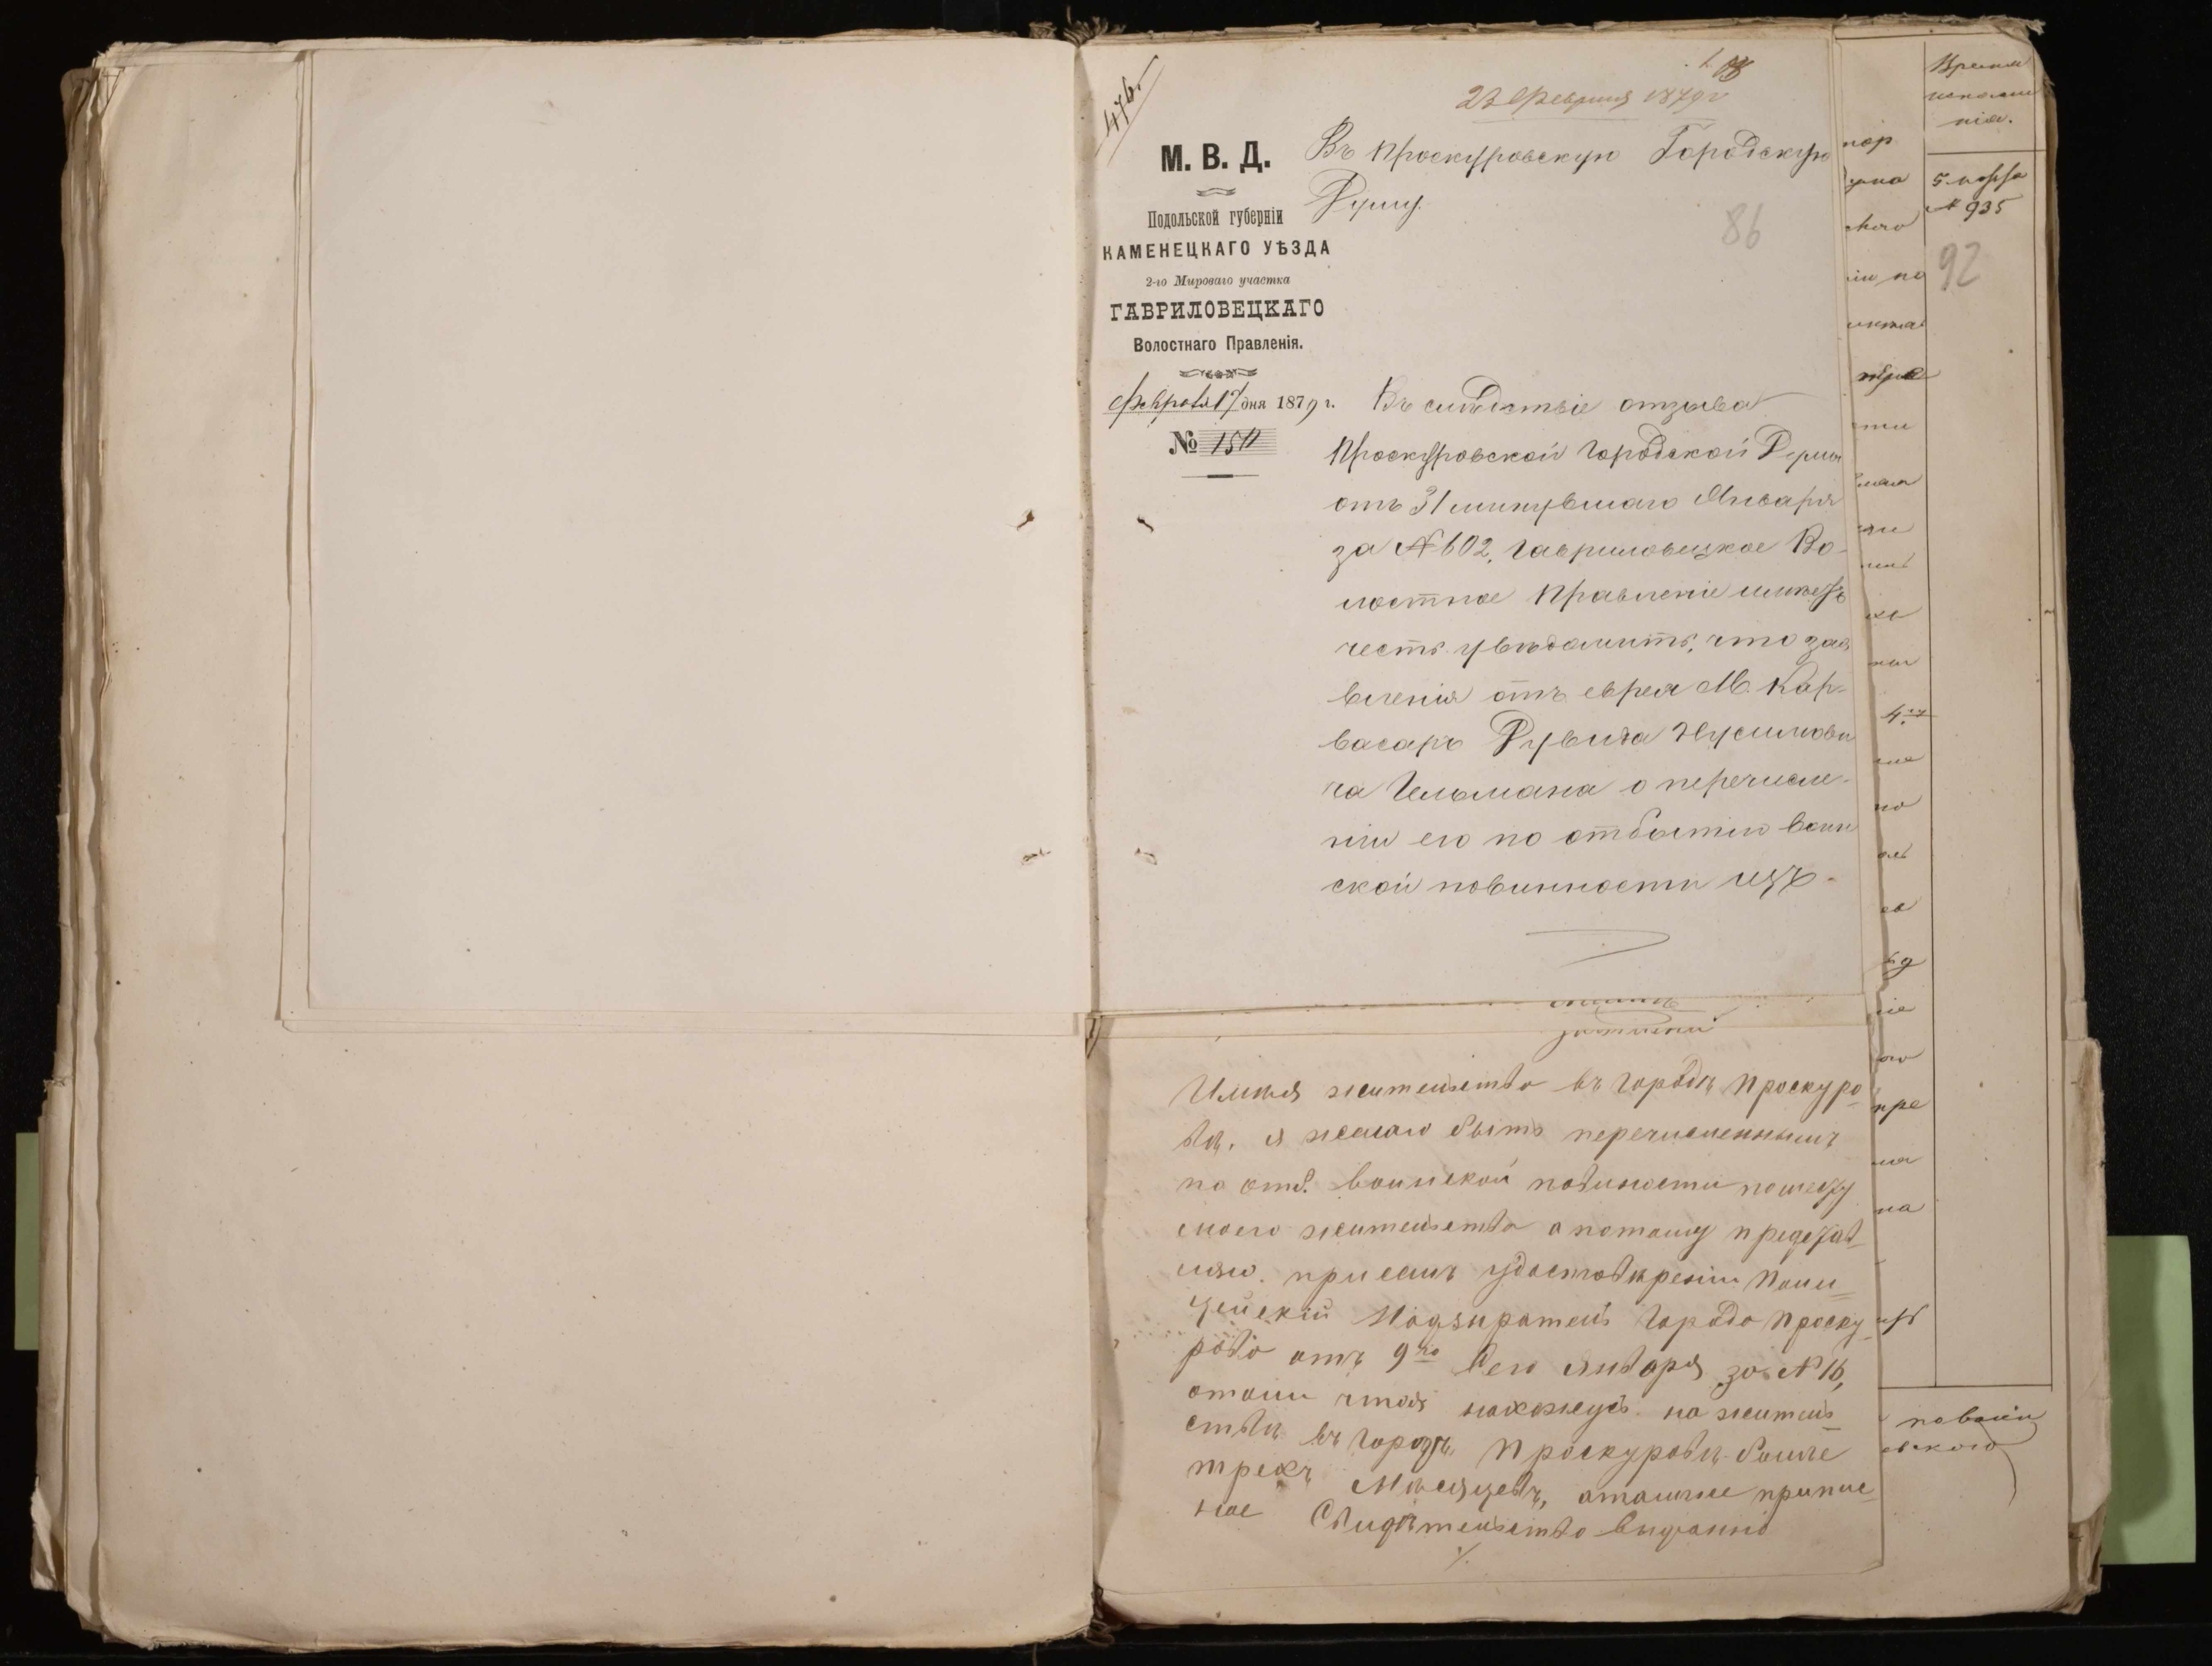 476
23 Февраля 1879 г
М. В. Д.
Подольской губерніи
КАМЕНЕЦКАГО УѢЗДА
2-го Мироваго участка
ГАВРИЛОВЕЦКАГО
Волостнаго Правленія.
Февраля 17 дня 1879 г.
№ 150
Въ Проскуровскую Городскую
Думу.
86
Въ слѣдствіе отзыва
Проскуровской Городской Думы
отъ 31 минувшаго Января
за № 602, Гавриловецкое Во-
лостное Правленіе имѣетъ
честь увѣдомить, что зая
вленія отъ еврея М. Кар-
васаръ Рувина Нусимови
ча Гельмана о перечисле-
ніи его по отбытію воин
ской повинности изъ-
Имѣя жительство въ городѣ Проскуро
вѣ, я желаю быть перечисленнымъ
по отб. воинской повиности по месту
моего жительства а потому представ
ляю при семъ удостовѣреніи Поли
цейскій Надзиратель города Проску
рова отъ 9го сего Января за № 16,
отомъ что я нахожусь на житель
ствѣ въ городѣ Проскуровѣ болѣе
трехъ Мѣсяцевъ, атакже припис
ное Свидѣтельство выданно
Время
исполне
нія.
№ 935
92